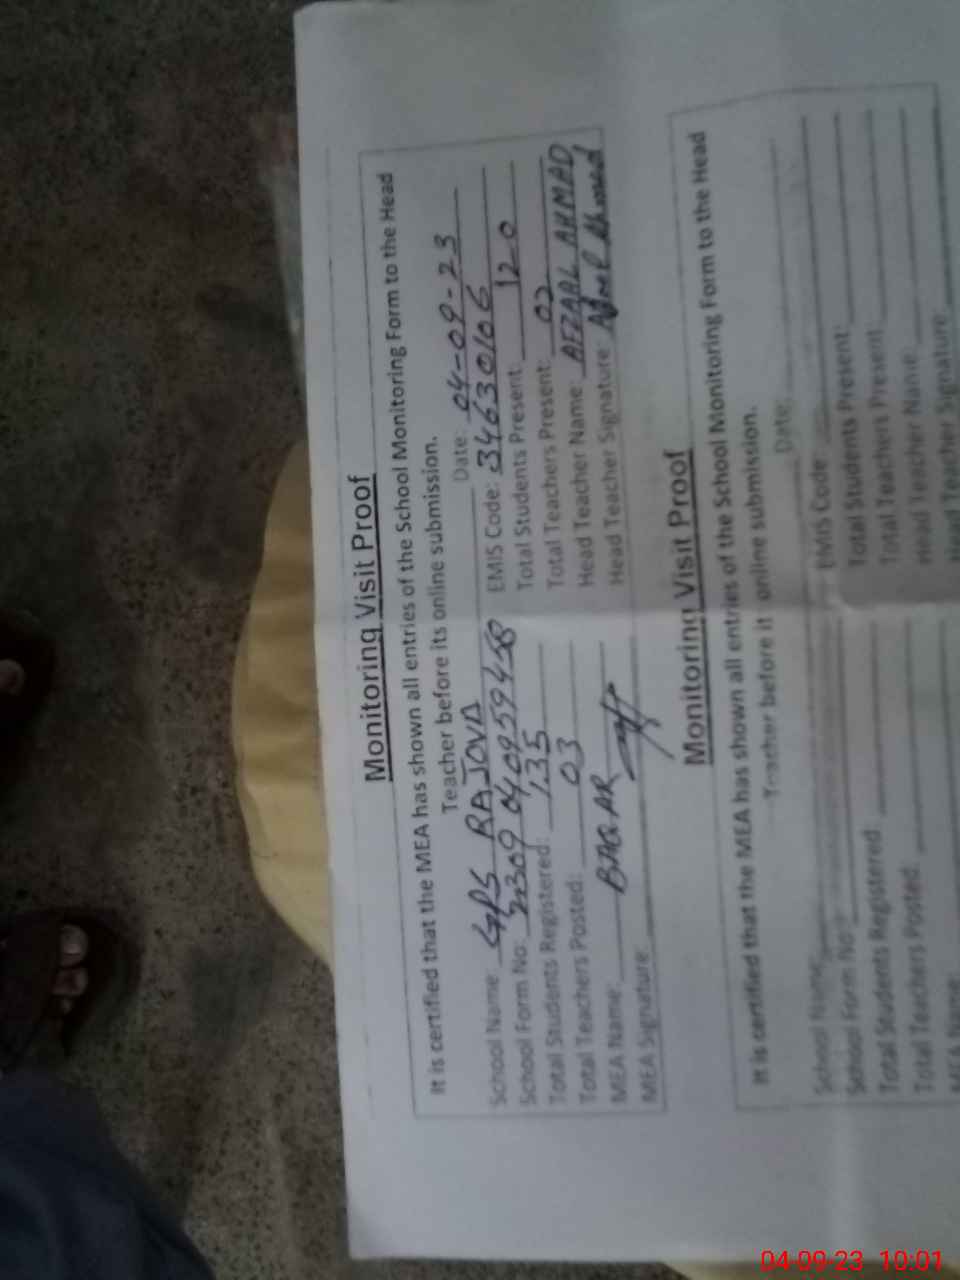 Monitoring Visit Proof
It is certified that the MEA has shown all entries of the School Monitoring Form to the Head
Teacher before its online submission.
School Name: GPS RAJOVA Date: 04-09-23
School Form No: EMIS Code: 34630106
Total Students Registered: 135 Total Students Present: 120
Total Teachers Posted: 03 Total Teachers Present: 02
MEA Name: BAQAR Head Teacher Name: AFZAAL AHMAD
MEA Signature: Head Teacher Signature: Afzaal Ahmad
Monitoring Visit Proof
It is certified that the MEA has shown all entries of the School Monitoring Form to the Head
Teacher before it online submission.
School Name: Date:
School Form No: EMIS Code:
Total Students Registered: Total Students Present:
Total Teachers Posted: Total Teachers Present:
MEA Name: Head Teacher Name:
Head Teacher Signature:
04-09-23 10:01